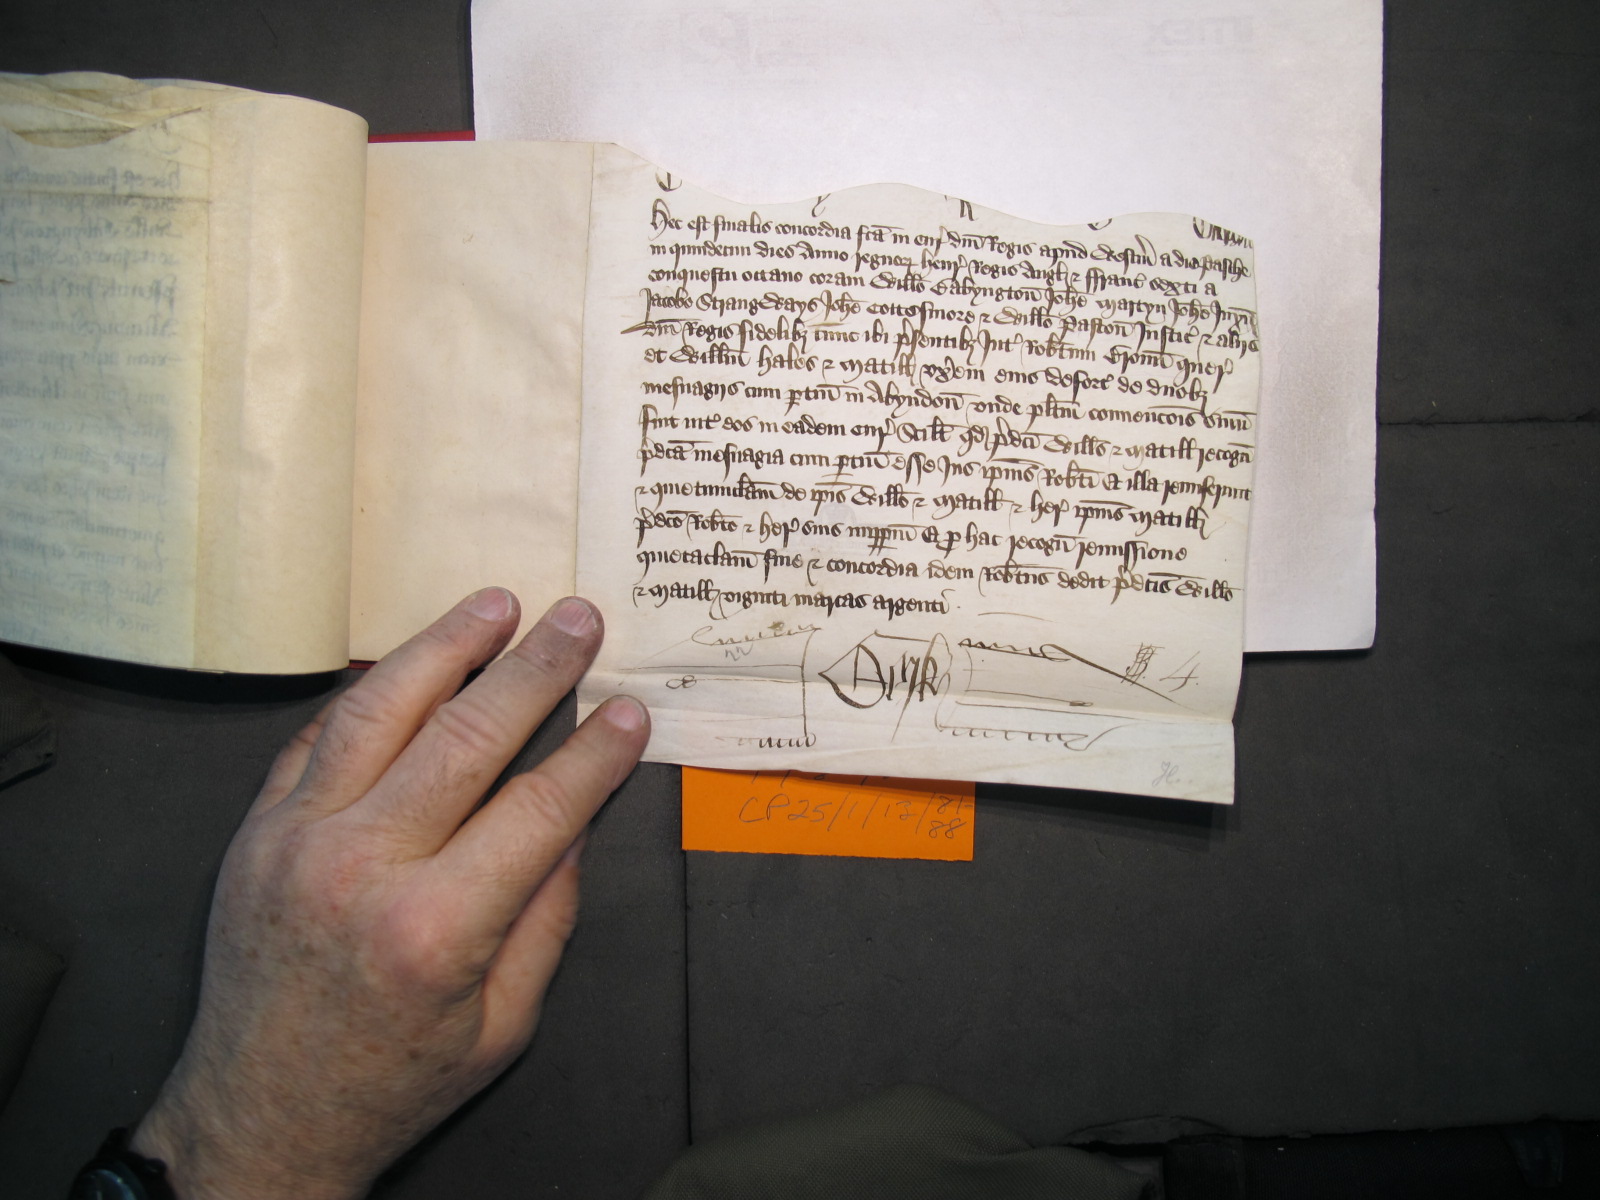 Hec est finalis concordia fca in Cur dni Regis apud Westm a die Pasche
in quindecim dies Anno regnor Henr Regis Angl & Franc sexti a
conquestu octavo coram Willo Babyngton Johe Martyn Johe Juyn
Jacobo Strangways Johe Cottesmore & Willo Paston Justic & aliis
dni Regis fidelibz tunc ibi psentibz Int Robtum Crom quer
et Willm Hales & Matill uxem eius deforc de duobz
mesuagiis cum ptin in Abyndon unde plitum convencois sum
fuit int eos in eadem Cur Scilt qd pdci Wills & Matill recogn
pdca mesuagia cum ptin esse Jus ipius Robti Et illa remiserunt
& quietumclam de ipis Willo & Matill & her ipius Matill
pdco Robto & her suis imppm Et p hac recogn remissione
quietaclam fine & concordia idem Robtus dedit pdcis Willo
& Matill viginti marcas argenti.
Berk
4.
CP25/1/13/81-
88